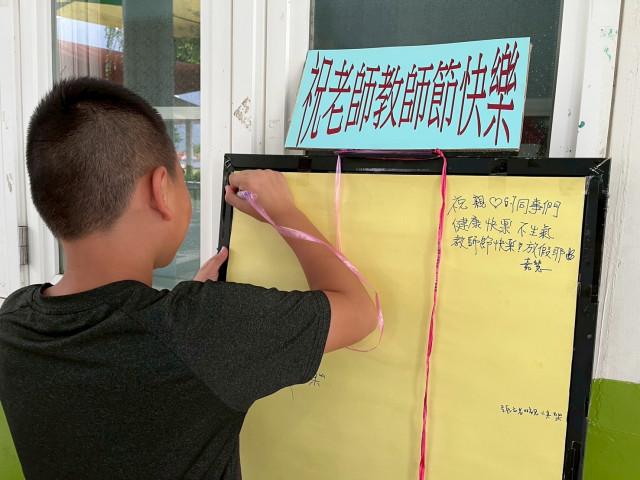 祝老師教師節快樂
祝親♡的同事們
健康快樂 不生氣
教師節快樂!放假耶
嘉慧